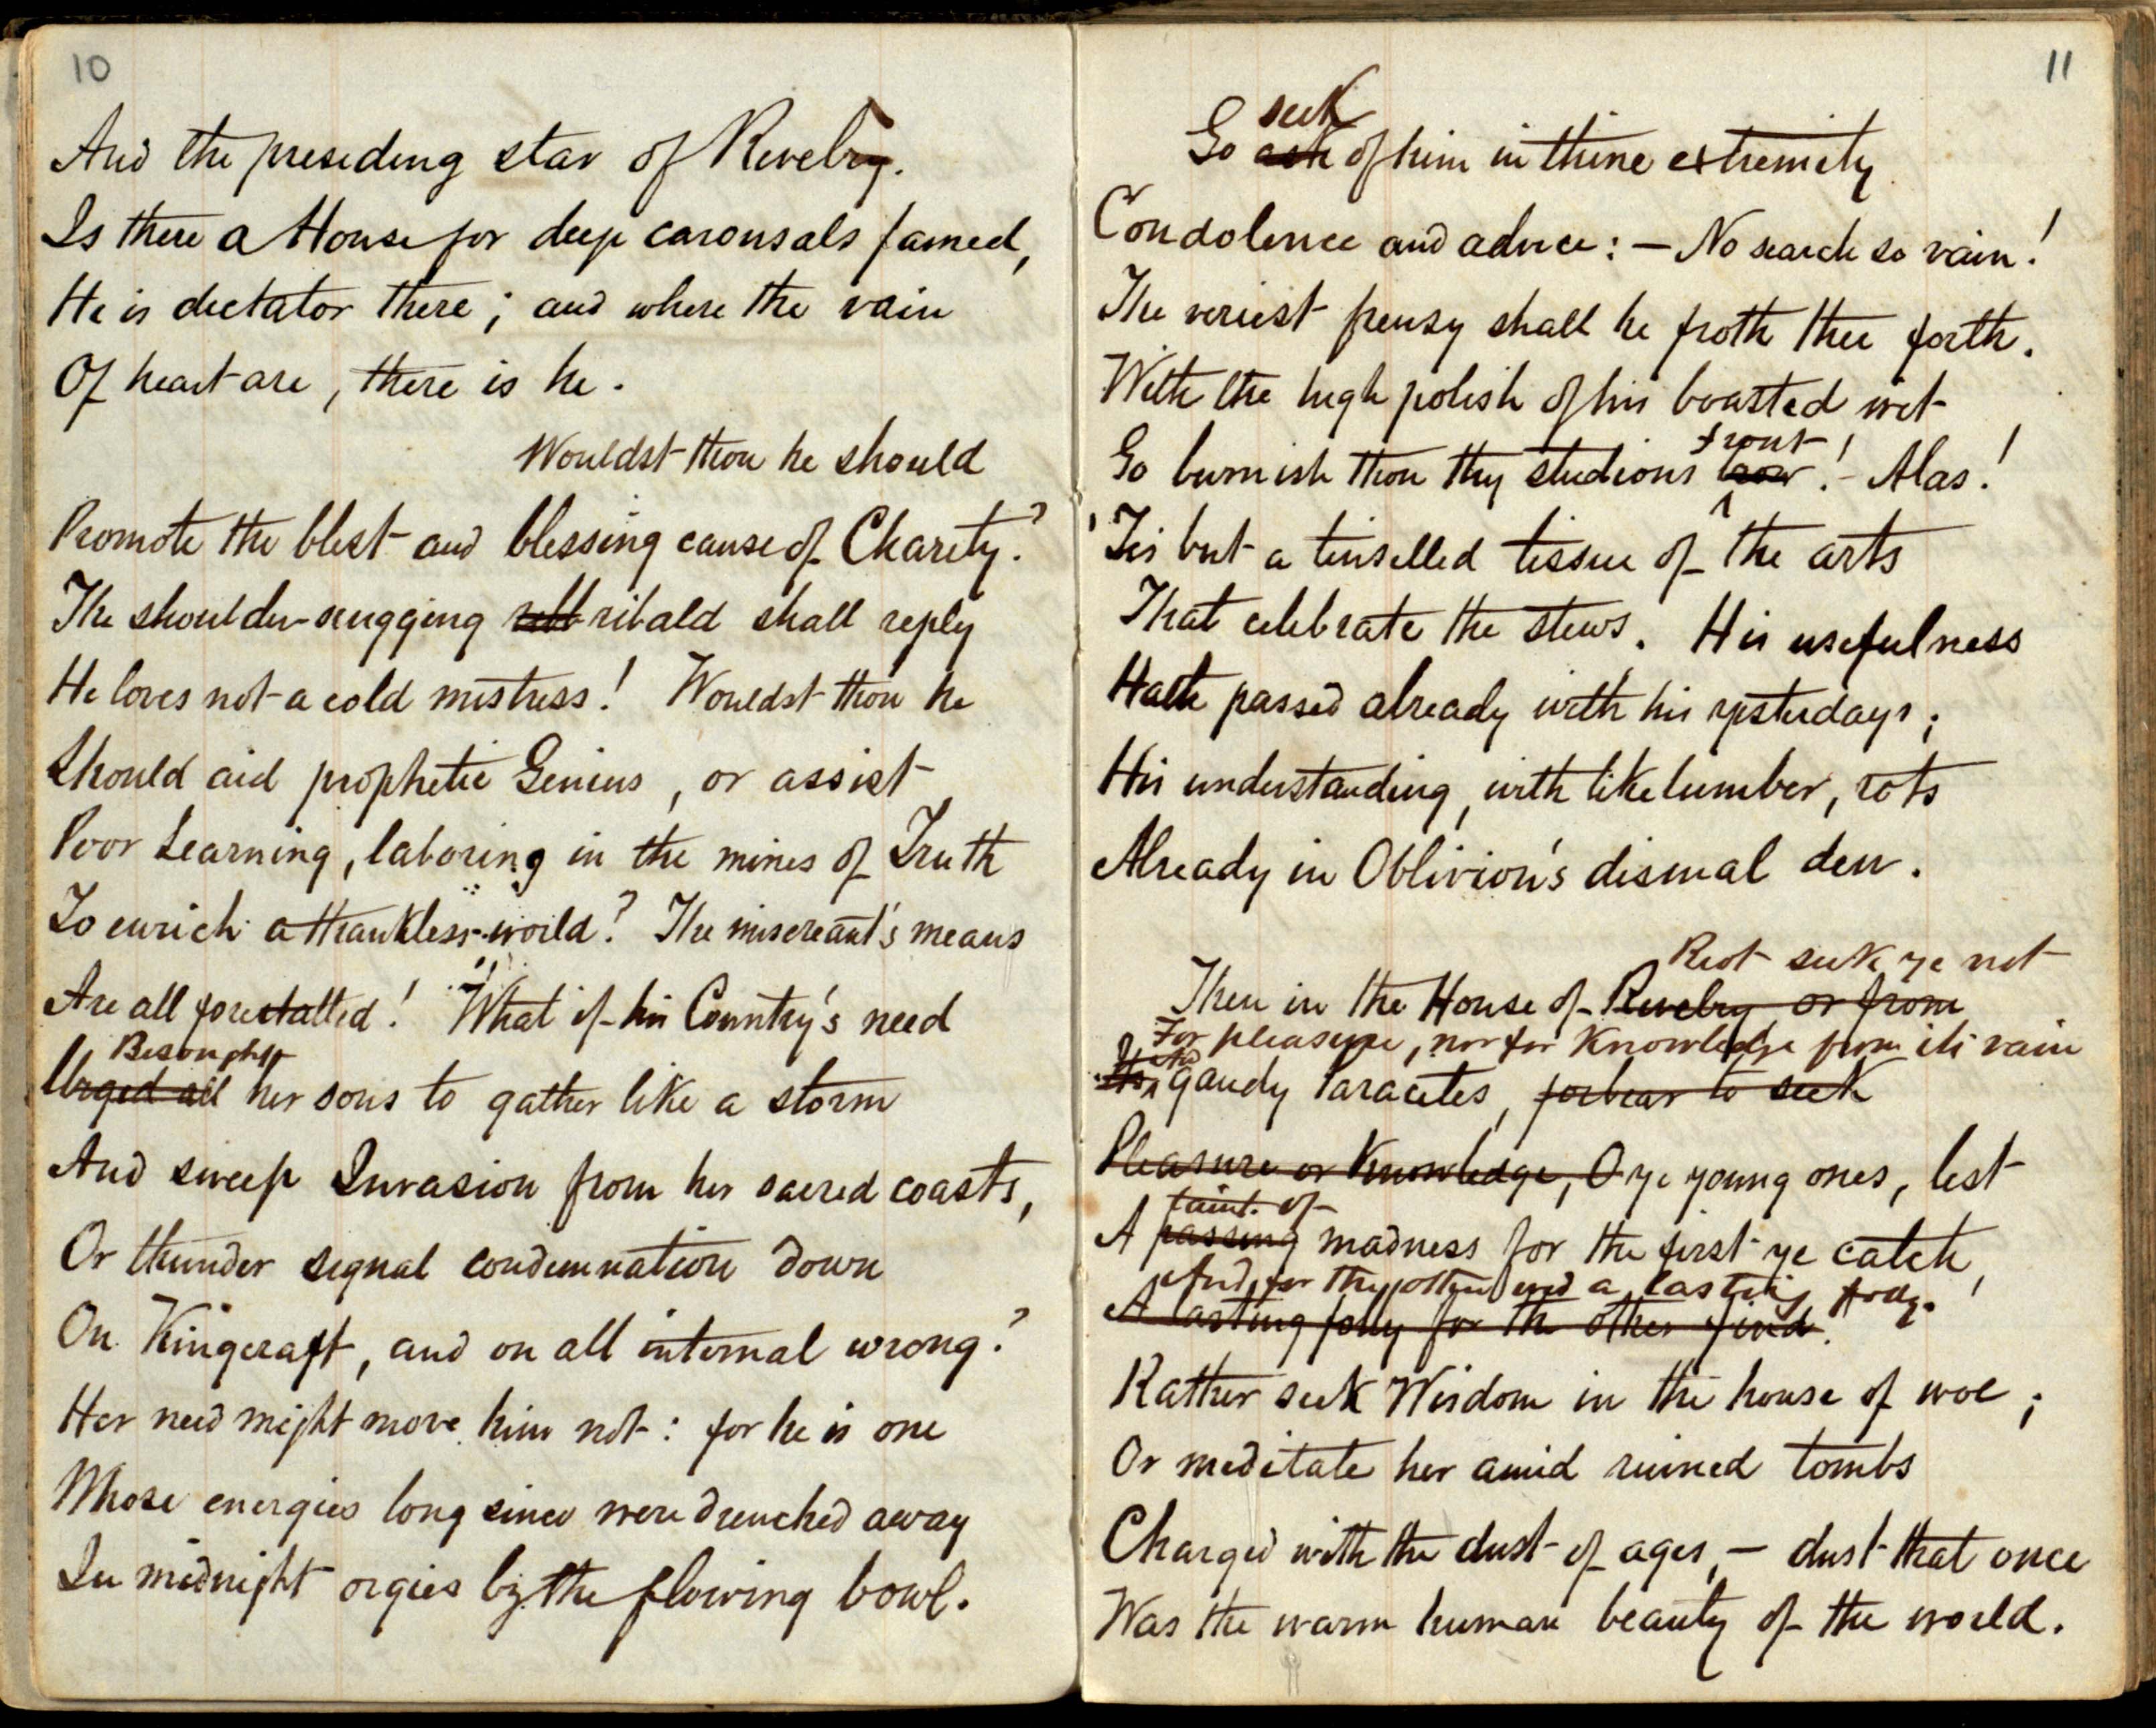 10
And the presiding star of Revelry.
Is there a House for deep carousals famed,
He is dictator there; and where the vain
Of heart are, there is he.
Wouldst thou he should
Promote the blest and blessing cause of Charity?
The shoulder-shrugging ribald shall reply
He loves not a cold mistress! Wouldst thou he
Should aid prophetic Genius, or assist
Poor Learning, laboring in the mines of Truth
To enrich a thankless world? The miscreant's means
Are all forestalled! What if his Country's need
Besought
Urged all her sons to gather like a storm
And sweep Invasion from her sacred coasts,
Or thunder signal condemnation down
On Kingcraft, and on all internal wrong?
Her need might move him not: for he is one
Whose energies long since were drenched away
In midnight orgies by the flowing bowl.
11
seek
Go ask of him in thine extremity
Condolence and advice: — No search so vain!
The veriest frenzy shall he froth thee forth.
With the high polish of his boasted wit
front
Go burnish thou thy studious brow! - Alas!
'Tis but a tinselled tissue of the arts
That celebrate the stews. His usefulness
Hath passed already with his yesterdays;
His understanding, with like lumber, rots
Already in Oblivion's dismal den.
Riot seek ye not
Then in the House of Revelry or from
For pleasure, nor for Knowledge from its vain
And
Its gaudy Paracites, forbear to seek
Pleasure or Knowledge, O ye young ones, lest
taint of
A passing madness for the first ye catch,
And for the other find a lasting folly.
A lasting folly for the other find!
Rather seek Wisdom in the house of woe;
Or meditate her amid ruined tombs
Charged with the dust of ages, — dust that once
Was the warm human beauty of the world.